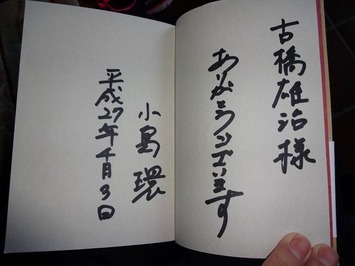 古橋雄治様
ありがとうございます
小島環
平成27年4月3日